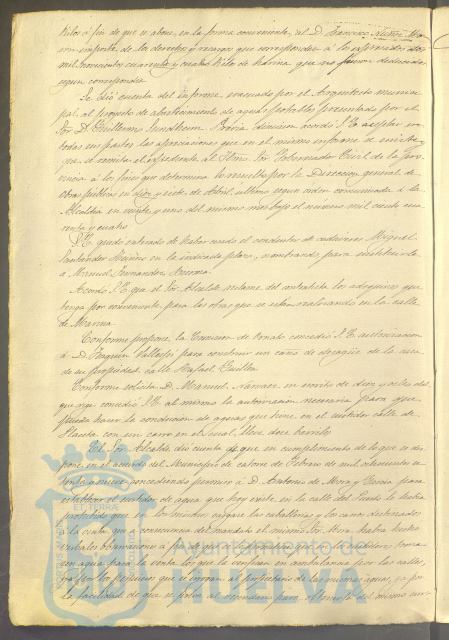 kilos á fin de que se abone, en la forma conveniente, al D. Francisco
importe de los derechos y recargos que corresponden á los expresados dos
mil trescientos cuarenta y cuatro kilos de harina que no fueron deducidos
segun correspondia.
Se dió cuenta del informe evacuado por el Arquitecto munici
pal, al proyecto de abastecimiento de aguas potables presentado por el
Sor D. Guillermo Sundheim. Prévia discusion acordó S. E. aceptar en
todas sus partes las apreciaciones que en el mismo informe se emiten y
que se remita el expediente al Iltmo. Sor Gobernador Civil de la pro
vincia á los fines que determina lo resuelto por la Direccion general de
Obras públicas en diez y siete de Abril último segun orden comunicada á la
Alcaldia en veinte y uno del mismo mes bajo el número mil ciento cua
renta y cuatro.
S. E. quedó enterado de haber cesado el conductor de cadáveres Miguel
Santander en la indicada plaza, nombrando para sustituirle
á Manuel Fernandez
Acordó S. E. que el Sor Alcalde reclame del contratista los adoquines que
tenga por conveniente, para las obras que se estan realizando en la calle
de Marina.
Conforme propone la Comision de Ornato concedió S. E. autorizacion
á D. Joaquin para construir un caño de desagüe de la casa
de su propiedad calle Rafael Guillen.
Conforme solicita D. Manuel Narvaez en escrito de diez y seis del
que rige concedió S. E. al mismo la autorizacion necesaria para que
pueda hacer la conduccion de aguas que tiene en el surtidor calle de
Placeta con un carro en el cual lleve doce barriles.
El Sor Alcalde dió cuenta de que en cumplimiento de lo que se dis
pone en el acuerdo del Municipio de catorce de Febrero de mil ochocientos se
senta y nueve concediendo permiso á D. Antonio de Mora y Garcia para
establecer el surtidor de agua que hoy existe en la calle del Puerto le habia
prohibido que en los mismos cargase las caballerias y los carros destinados
á la venta que á consecuencia del mandato el mismo Sor Mora habia hecho
verbales observaciones
con agua para la venta los que la verifican en ambulancia por las calles,
ya por los perjuicios que se irrogan al propietario de las mismas aguas, ya por
la facilidad de que se priva al vecindario para obtener del mismo sur-
ET TERRÆ
Ayuntamiento de
HUELVA